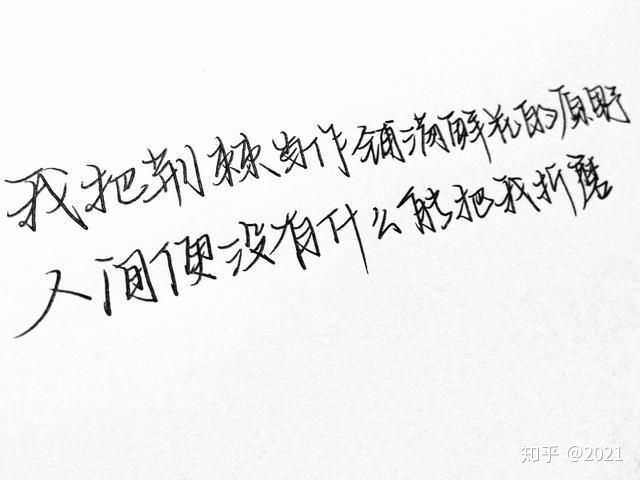 我把荆棘当作铺满鲜花的原野
人间便没有什么能把我折磨
知乎 @2021